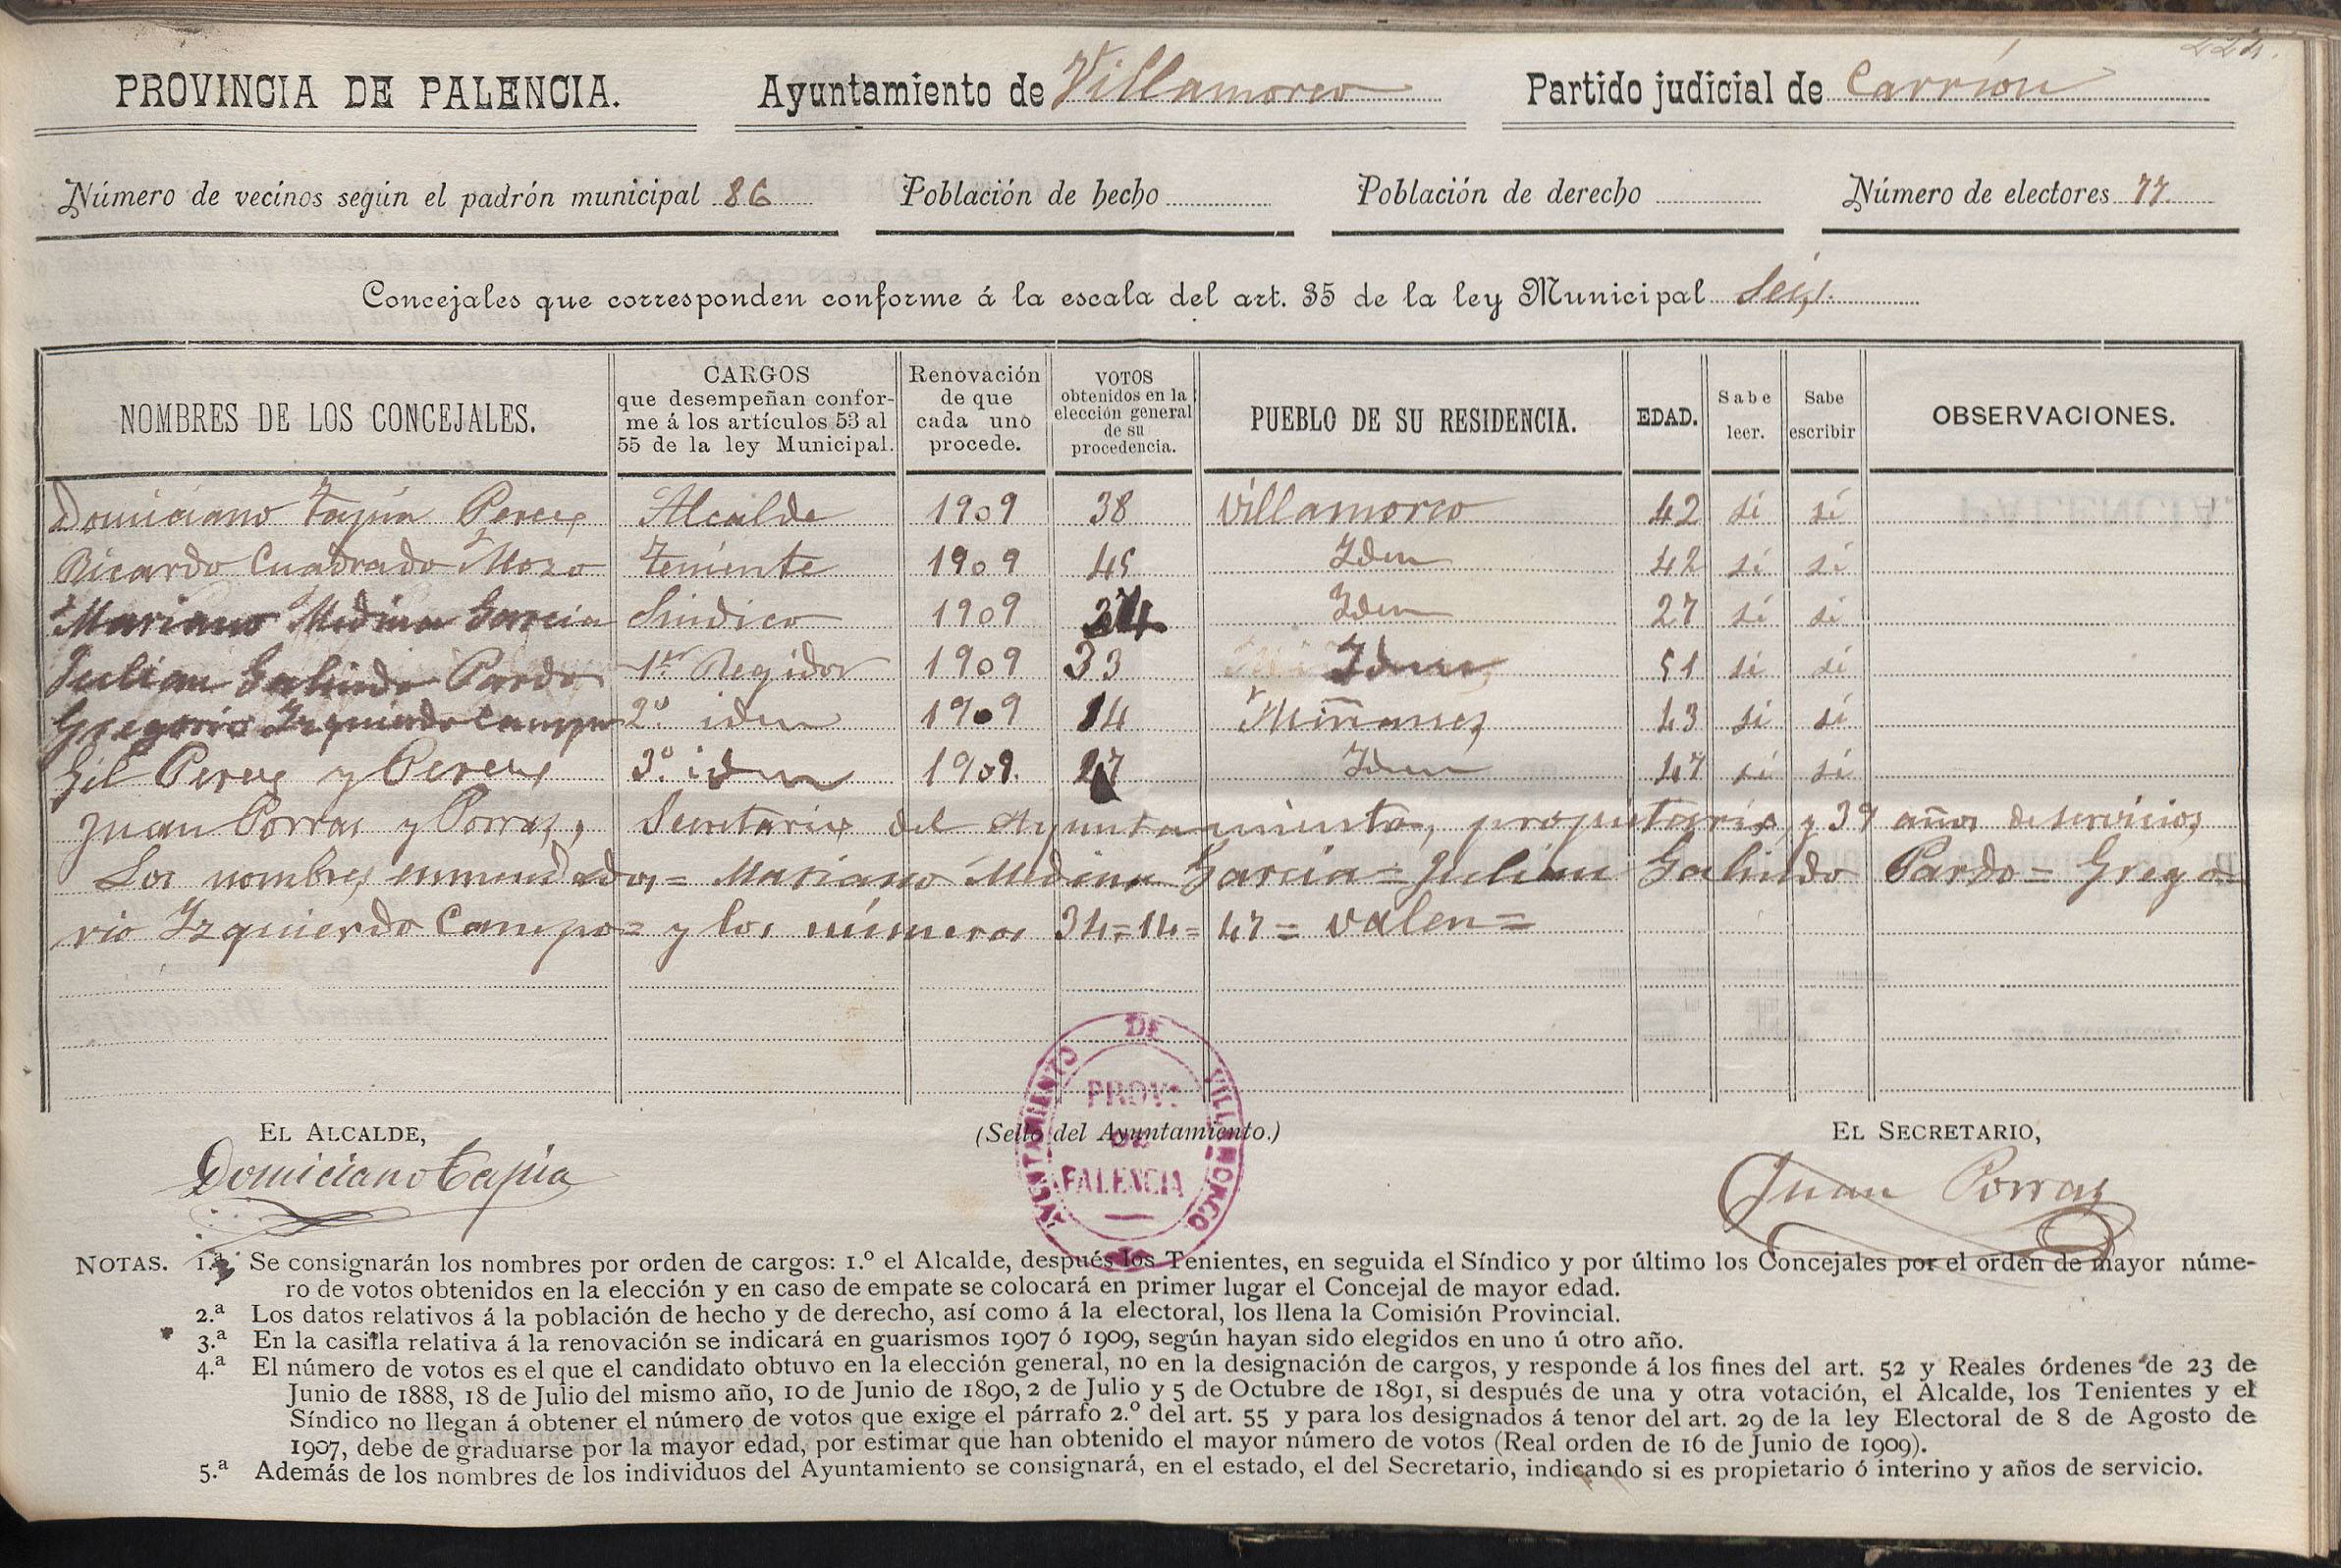 224.
PROVINCIA DE PALENCIA. Ayuntamiento de Villamorco Partido judicial de Carrión
Número de vecinos según el padrón municipal 86 Población de hecho Población de derecho Número de electores 77
Concejales que corresponden conforme á la escala del art. 35 de la ley Municipal Seis.
NOMBRES DE LOS CONCEJALES. CARGOS que desempeñan conforme á los artículos 53 al 55 de la ley Municipal. Renovación de que cada uno procede. VOTOS obtenidos en la elección general de su procedencia. PUEBLO DE SU RESIDENCIA. EDAD. Sabe leer. Sabe escribir OBSERVACIONES.
Domiciano Tapia Perez Alcalde 1909 38 Villamorco 42 sí sí
Ricardo Cuadrado Mozo Teniente 1909 45 Idem 42 sí sí
Mariano Medina Garcia Sindico 1909 34 Idem 27 sí si
Julian Galindo Pardo 1er Regidor 1909 33 Idem 51 si sí
Gregorio Izquierdo Campo 2º idem 1909 14 Miñanes 43 si sí
Gil Perez y Perez 3º idem 1909. Idem 47 sí sí
Juan Porras y Porras, Secretario del Ayuntamiento, propietario y 39 años de servicios
Los nombres enmendados = Mariano Medina Garcia = Julian Galindo Pardo = Grego
rio Izquierdo Campo = y los números 34 = 14 = 47 = valen =
EL ALCALDE, (Sello del Ayuntamiento.) EL SECRETARIO,
AYUNTAMIENTO DE VILLAMORCO
PROV.
DE
PALENCIA
Domiciano Tapia Juan Porras
NOTAS. 1.ª Se consignarán los nombres por orden de cargos: 1.º el Alcalde, después los Tenientes, en seguida el Síndico y por último los Concejales por el orden de mayor núme-
ro de votos obtenidos en la elección y en caso de empate se colocará en primer lugar el Concejal de mayor edad.
2.ª Los datos relativos á la población de hecho y de derecho, así como á la electoral, los llena la Comisión Provincial.
3.ª En la casilla relativa á la renovación se indicará en guarismos 1907 ó 1909, según hayan sido elegidos en uno ú otro año.
4.ª El número de votos es el que el candidato obtuvo en la elección general, no en la designación de cargos, y responde á los fines del art. 52 y Reales órdenes de 23 de
Junio de 1888, 18 de Julio del mismo año, 10 de Junio de 1890, 2 de Julio y 5 de Octubre de 1891, si después de una y otra votación, el Alcalde, los Tenientes y el
Síndico no llegan á obtener el número de votos que exige el párrafo 2.º del art. 55 y para los designados á tenor del art. 29 de la ley Electoral de 8 de Agosto de
1907, debe de graduarse por la mayor edad, por estimar que han obtenido el mayor número de votos (Real orden de 16 de Junio de 1909).
5.ª Además de los nombres de los individuos del Ayuntamiento se consignará, en el estado, el del Secretario, indicando si es propietario ó interino y años de servicio.